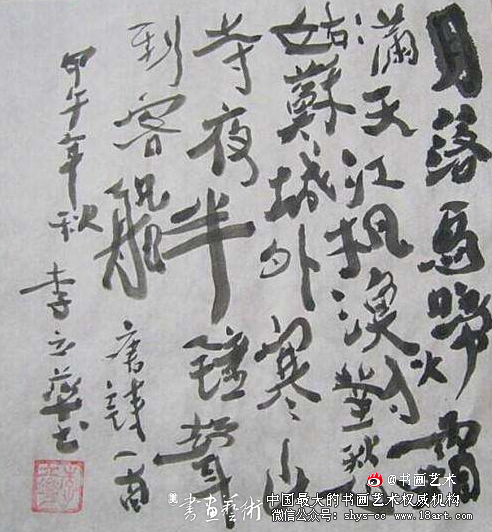 月落烏啼霜
滿天江枫漁火對愁眠
姑蘇城外寒山
寺夜半鐘聲
到客船 唐詩一首
甲午年秋 李立
書画藝術
@书画艺术
中国最大的书画艺术权威机构
微信公众号: shys-cc www.18art.com